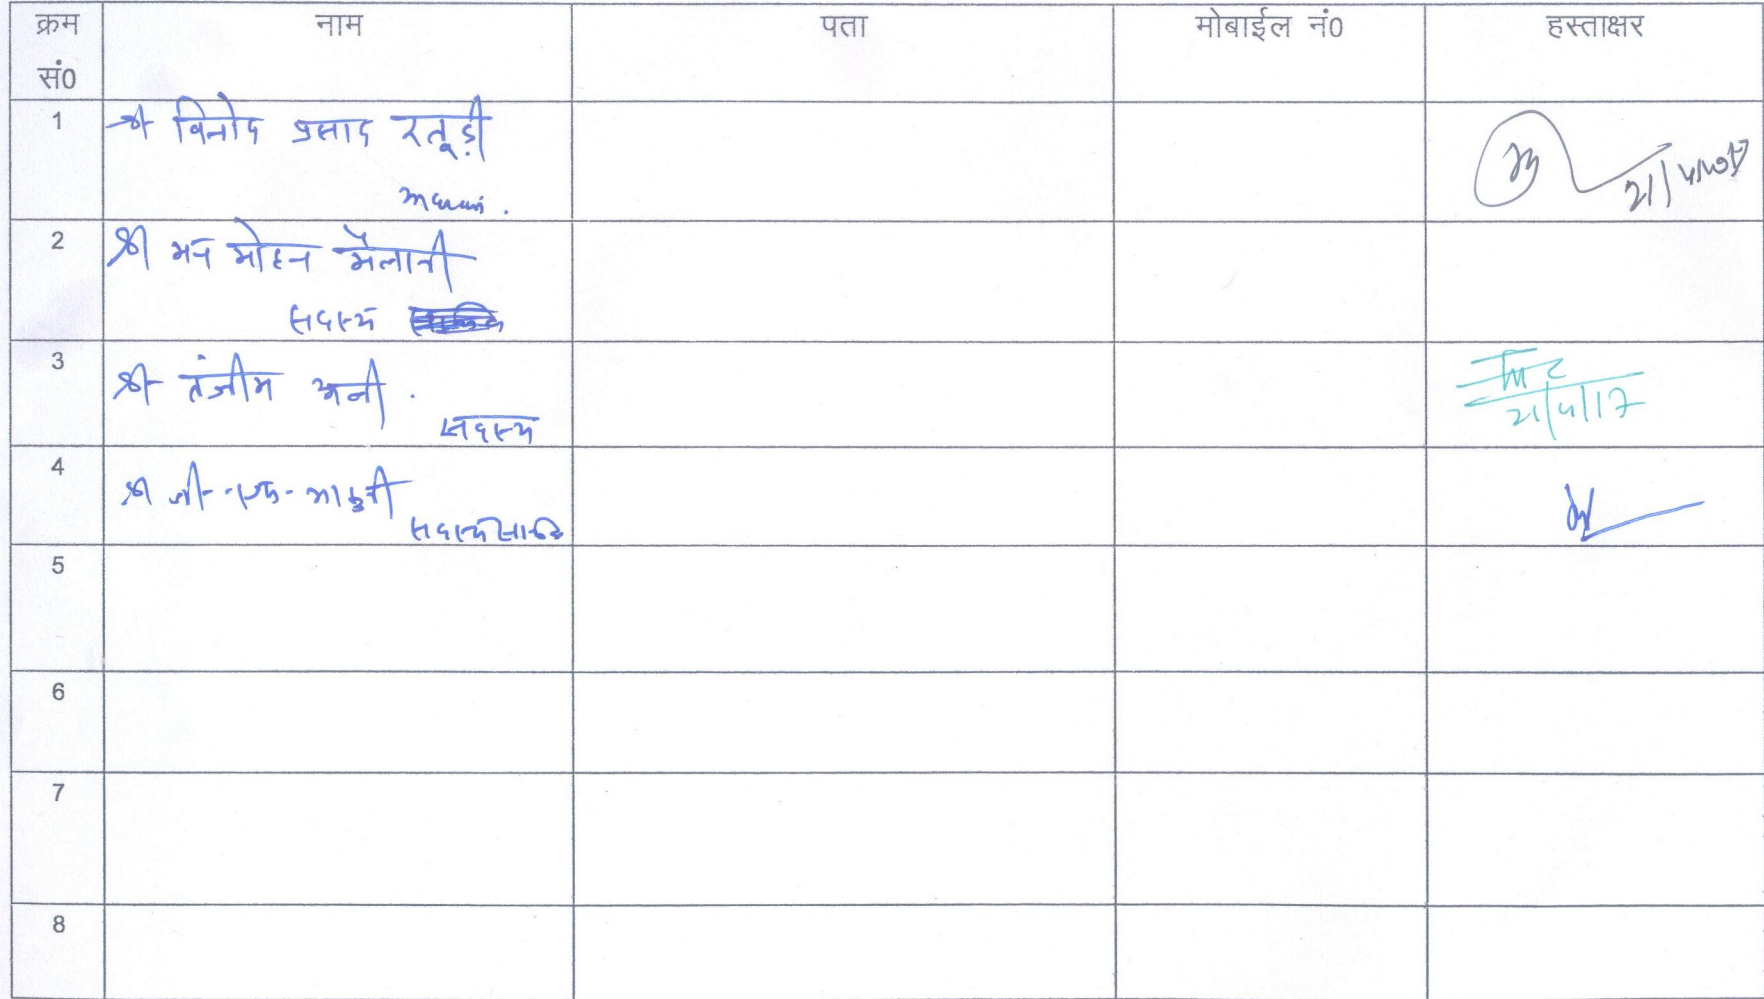 क्रम नाम पता मोबाईल नं0 हस्ताक्षर
सं0
1 श्री विनोद प्रसाद रतूड़ी
अध्यक्ष.
2 श्री मन मोहन मैलानी
सदस्य
3 श्री तंजीम अली.
सदस्य
21/4/17
4 श्री
सदस्य सचिव
5
6
7
8